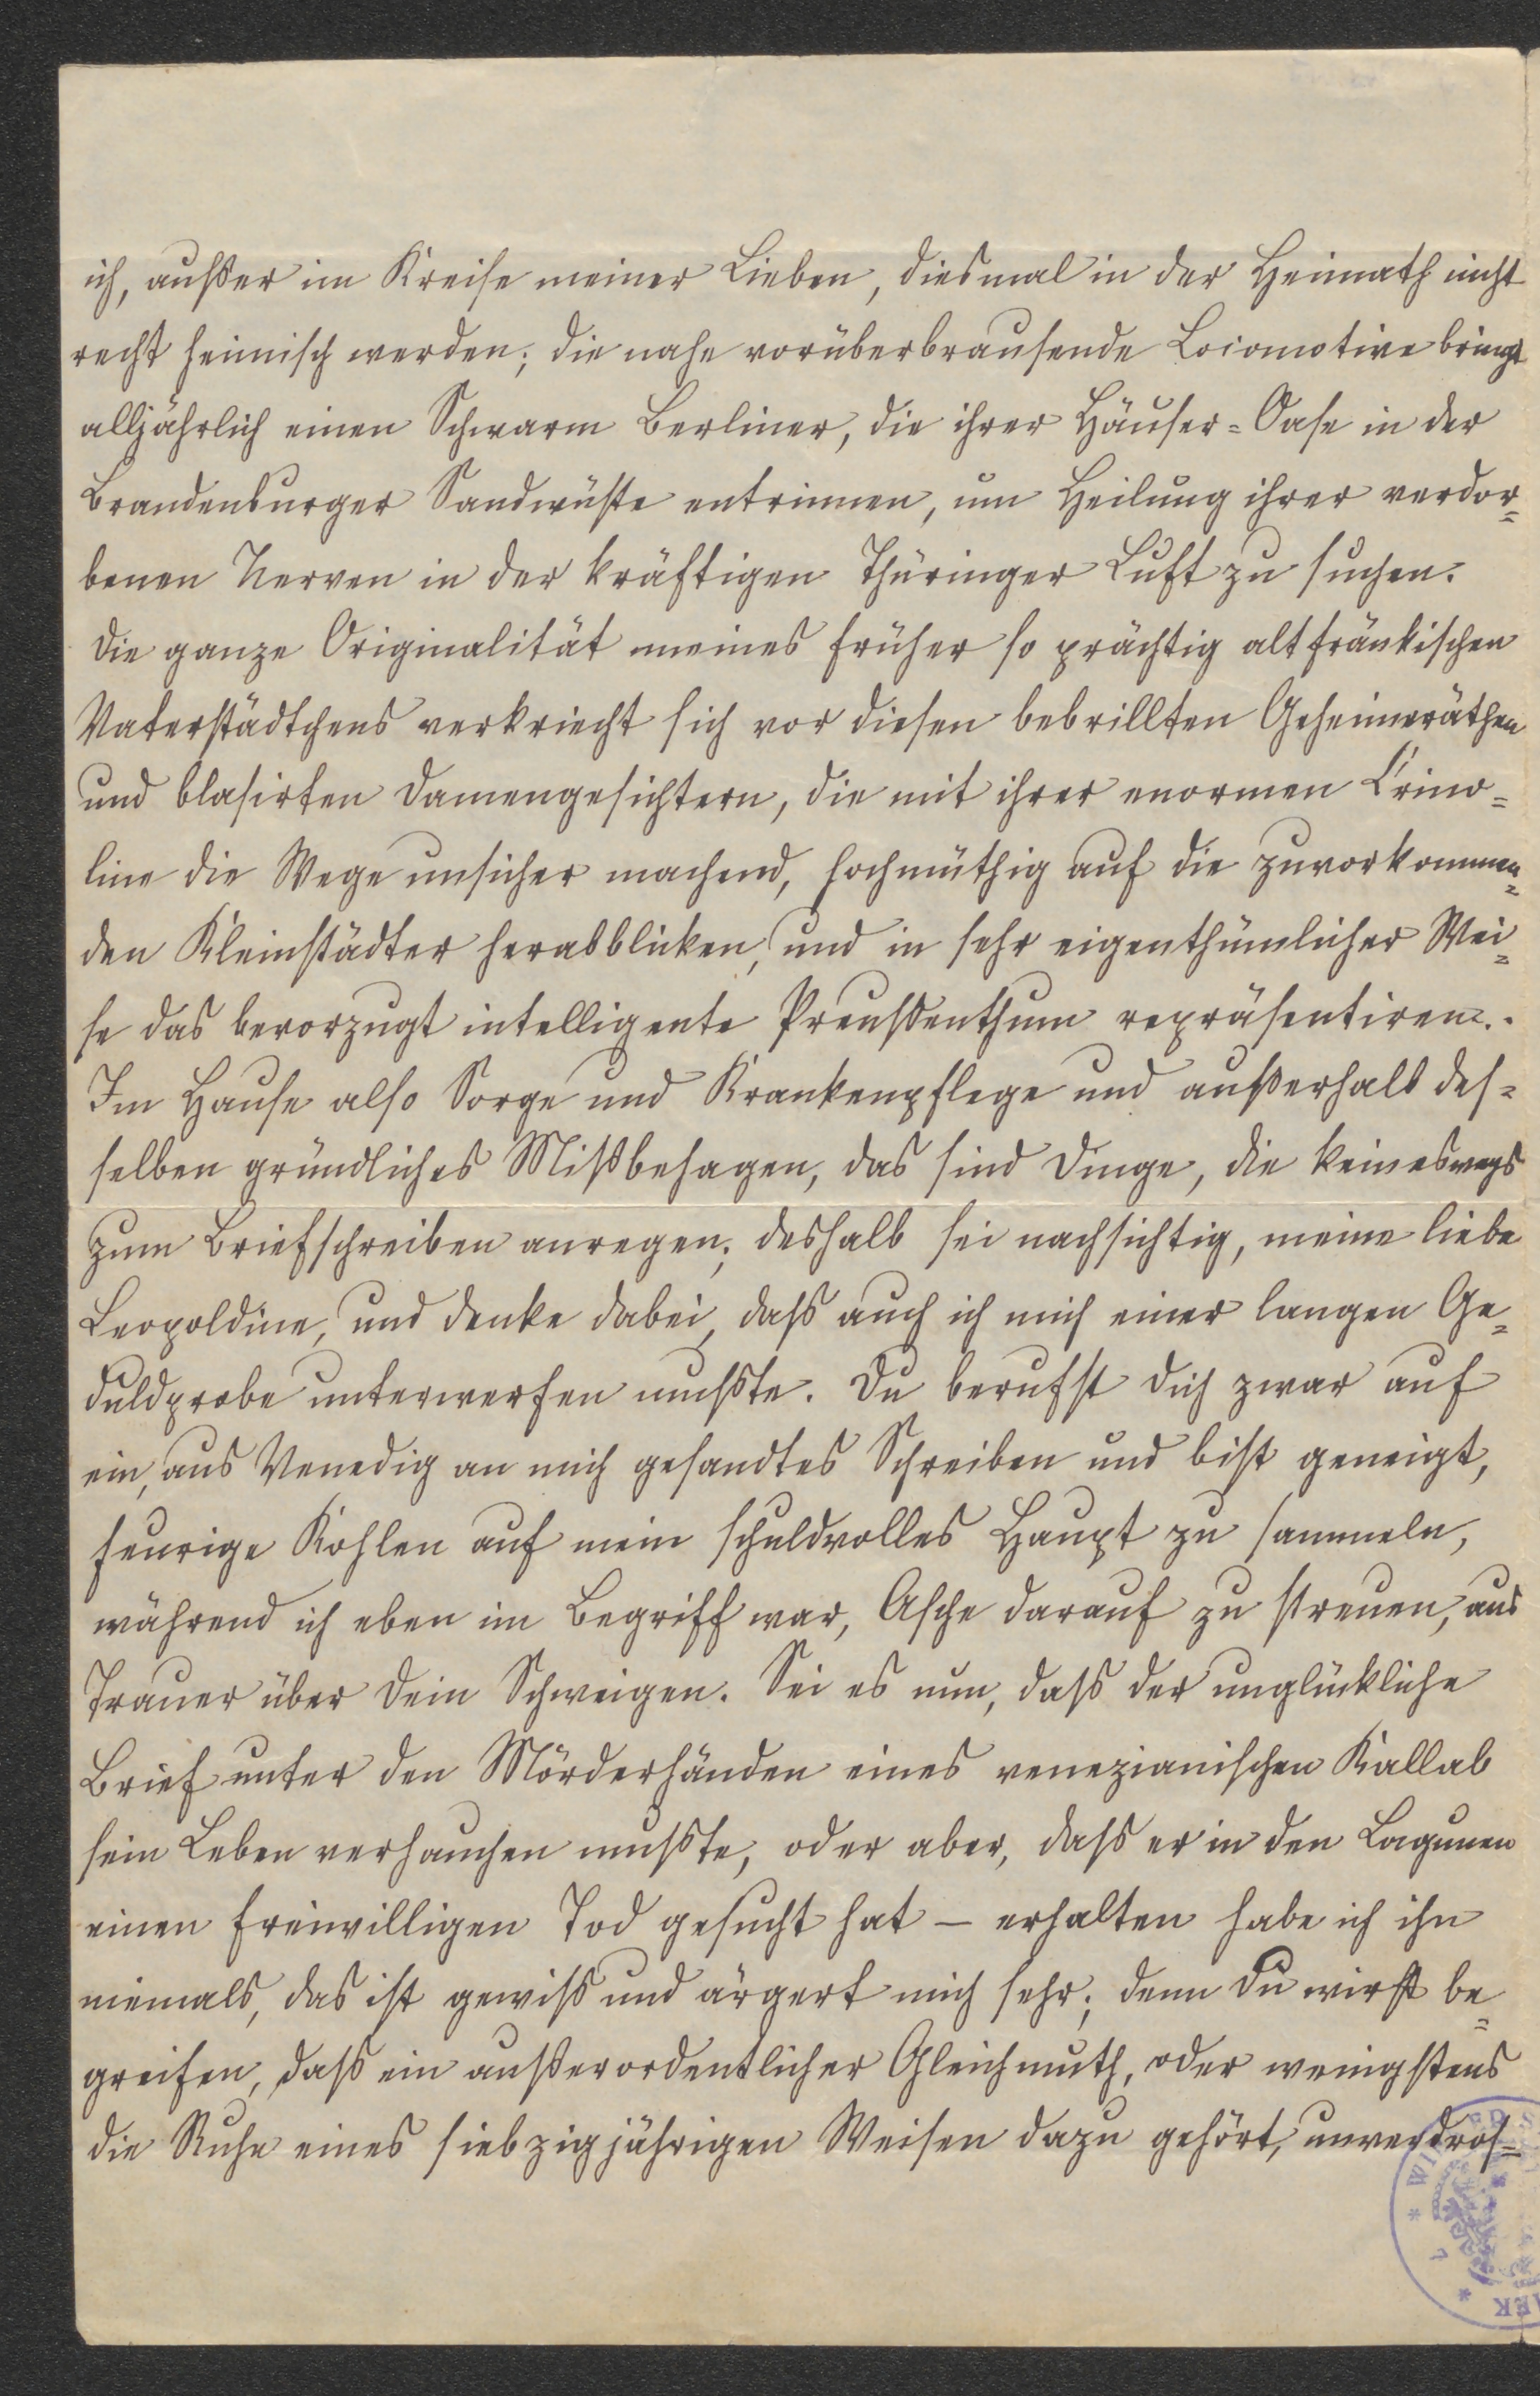 ich, außer im Kreise meiner Lieben, diesmal in der Heimath nicht
recht heimisch werden; die nahe vorüberbrausende Locomotive bringt
alljährlich einen Schwarm Berliner, die ihrer Häuser=Oase in der
Brandenburger Sandwüste entrinnen, um Heilung ihrer verdor=
benen Nerven in der kräftigen Thüringer Luft zu suchen.
Die ganze Originalität meines früher so prächtig altfränkischen
Vaterstädtchens verkriecht sich vor diesen bebrillten Geheimeräthen
und blasirten Damengesichtern, die mit ihrer enormen Crino=
line die Wege unsicher machend, hochmüthig auf die zuvorkommen=
den Kleinstädter herabblicken, und in sehr eigenthümlicher Wei=
se das bevorzugt intelligente Preußenthum repräsentiren.
Im Hause also Sorge und Krankenpflege und außerhalb des=
selben gründliches Mißbehagen, das sind Dinge, die keineswegs
zum Briefschreiben anregen; deshalb sei nachsichtig, meine liebe
Leopoldine, und denke dabei, daß auch ich mich einer langen Ge=
duldprobe unterwerfen mußte. Du berufst Dich zwar auf
ein, aus Venedig an mich gesandtes Schreiben und bist geneigt,
feurige Kohlen auf mein schuldvolles Haupt zu sammeln,
während ich eben im Begriff war, Asche darauf zu streuen, aus
Trauer über Dein Schweigen. Sei es nun, daß der unglückliche
Brief unter den Mörderhänden eines venezianischen Kallab
sein Leben verhauchen mußte, oder aber, daß er in den Lagunen
einen freiwilligen Tod gesucht hat – erhalten habe ich ihn
niemals, das ist gewiß und ärgert mich sehr; denn Du wirst be=
greifen, daß ein außerordentlicher Gleichmuth, oder wenigstens
die Ruhe eines siebzigjährigen Weisen dazu gehört, unverdros=